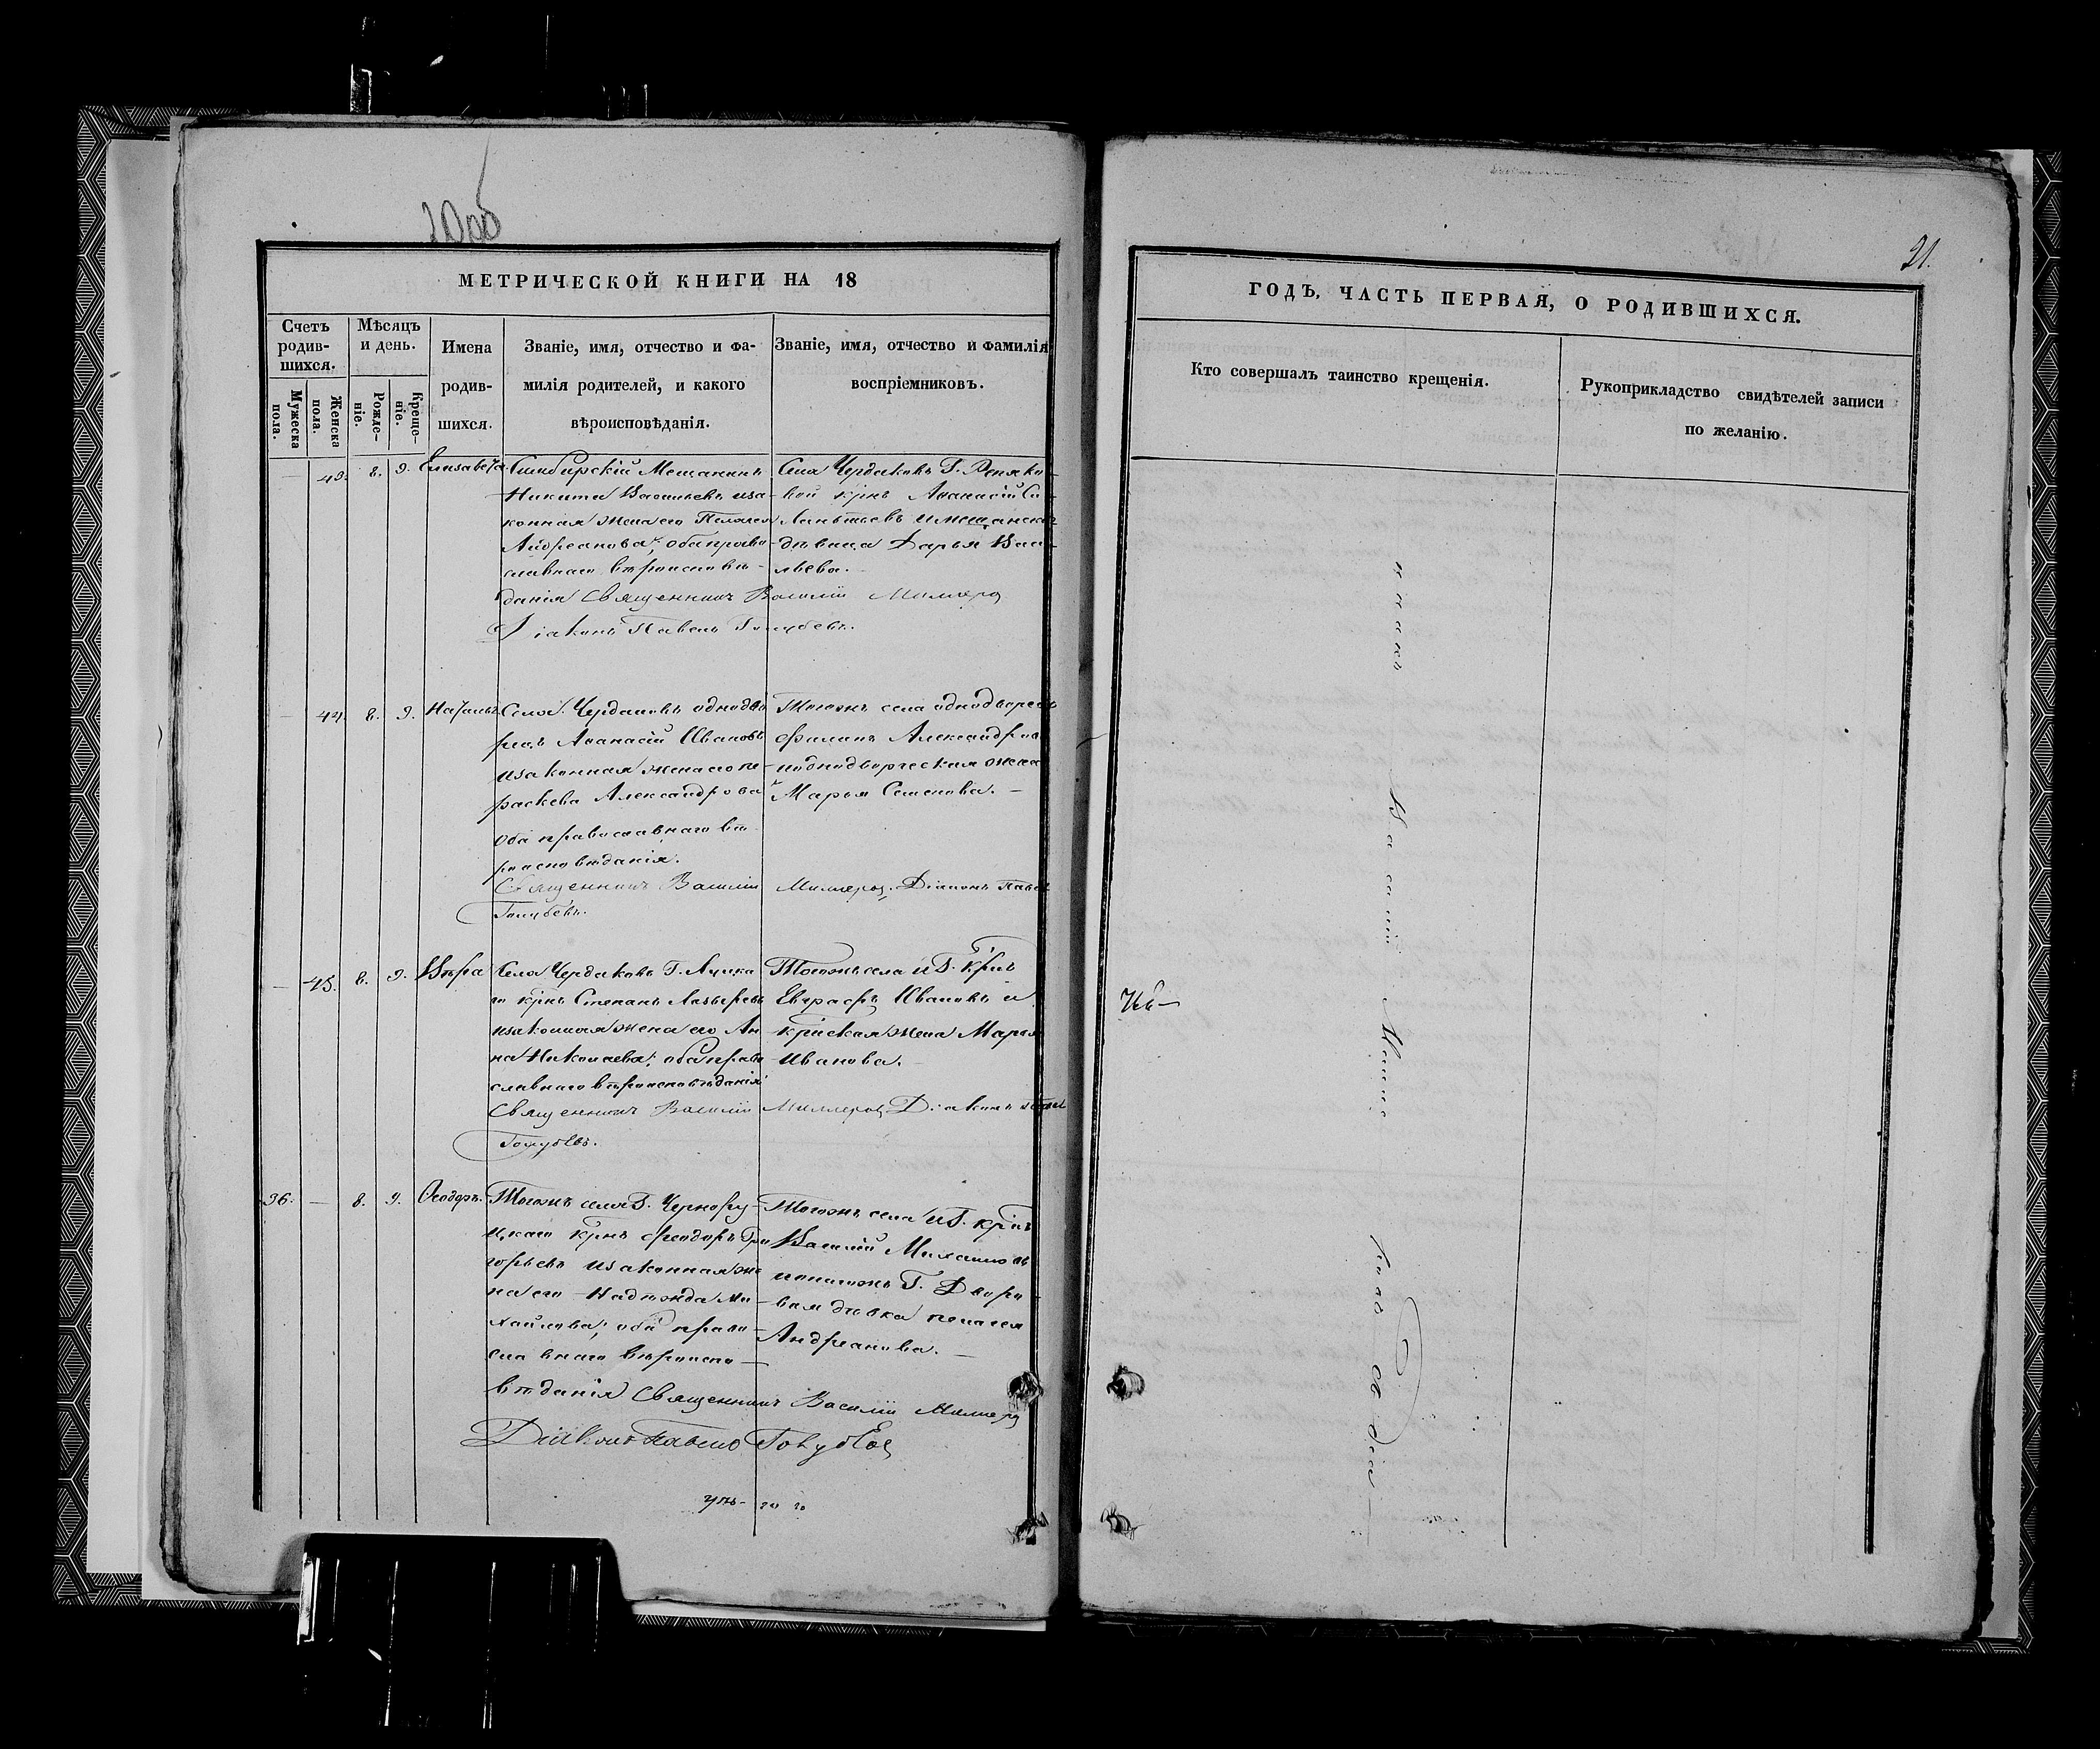 20об
МЕТРИЧЕСКОЙ КНИГИ НА 18
Счетъ родив-шихся.
Мужеска пола.
Женска пола.
Мѣсяцъ и день.
Рожде-ніе.
Креще-ніе.
Имена родив-шихся.
Званіе, имя, отчество и фа-
милія родителей, и какого
вѣроисповѣданія.
Званіе, имя, отчество и фамилія
воспріемниковъ.
43. 8. 9. Елизавета
Симбирскій Мещанинъ
Никита Васильевъ иза-
конная жена его Пелагея
Андреанова; оба право-
славнаго вѣроисповѣ-
данія Священникъ Василій
Діаконъ Павелъ Голубевъ.
Села Чердаковъ Г.
крнъ Аѳанасій
и мещанская
дѣвица Дарья Васи-
льева.
44. 8. 9. Наталья
Села Чердаковъ однодво
рецъ Аѳанасій Ивановъ
изаконная жена его Па-
раскева Александрова
оба православнаго вѣ-
роисповѣданія.
Священникъ Василій Діаконъ Павелъ
Голубевъ.
Тогожъ села однодворецъ
Филипъ Александровъ
иоднодворческая жена
Марья Семенова. —
45. 8. 9. Вѣра
Села Чердаковъ Г.
крнъ Степанъ
изаконная жена его Ан
на Николаева; оба право
славнаго вѣроисповѣданія
Священникъ Василій Діаконъ Павелъ
Голубевъ.
Тогожъ села и Г. крнъ
Евграфъ Ивановъ и
крнская жена Марья
Иванова. —
36. — 8. 9. Ѳеодоръ.
Тогожъ села Г. Чернору-
цкаго крнъ Ѳеодоръ Гри
горьевъ изаконная же
на его Надежда Ми-
хайлова; оба право-
славнаго вѣроиспо-
вѣданія Священникъ Василій
Діаконъ Павелъ Голубевъ
Тогожъ села и Г. крнъ
Василій Михайловъ
итогожъ Г. Дворо-
вая дѣвка Пелагея
Андреанова. —
21.
ГОДЪ, ЧАСТЬ ПЕРВАЯ, О РОДИВШИХСЯ.
Кто совершалъ таинство крещенія.
Рукоприкладство свидѣтелей записи
по желанію.
Василій